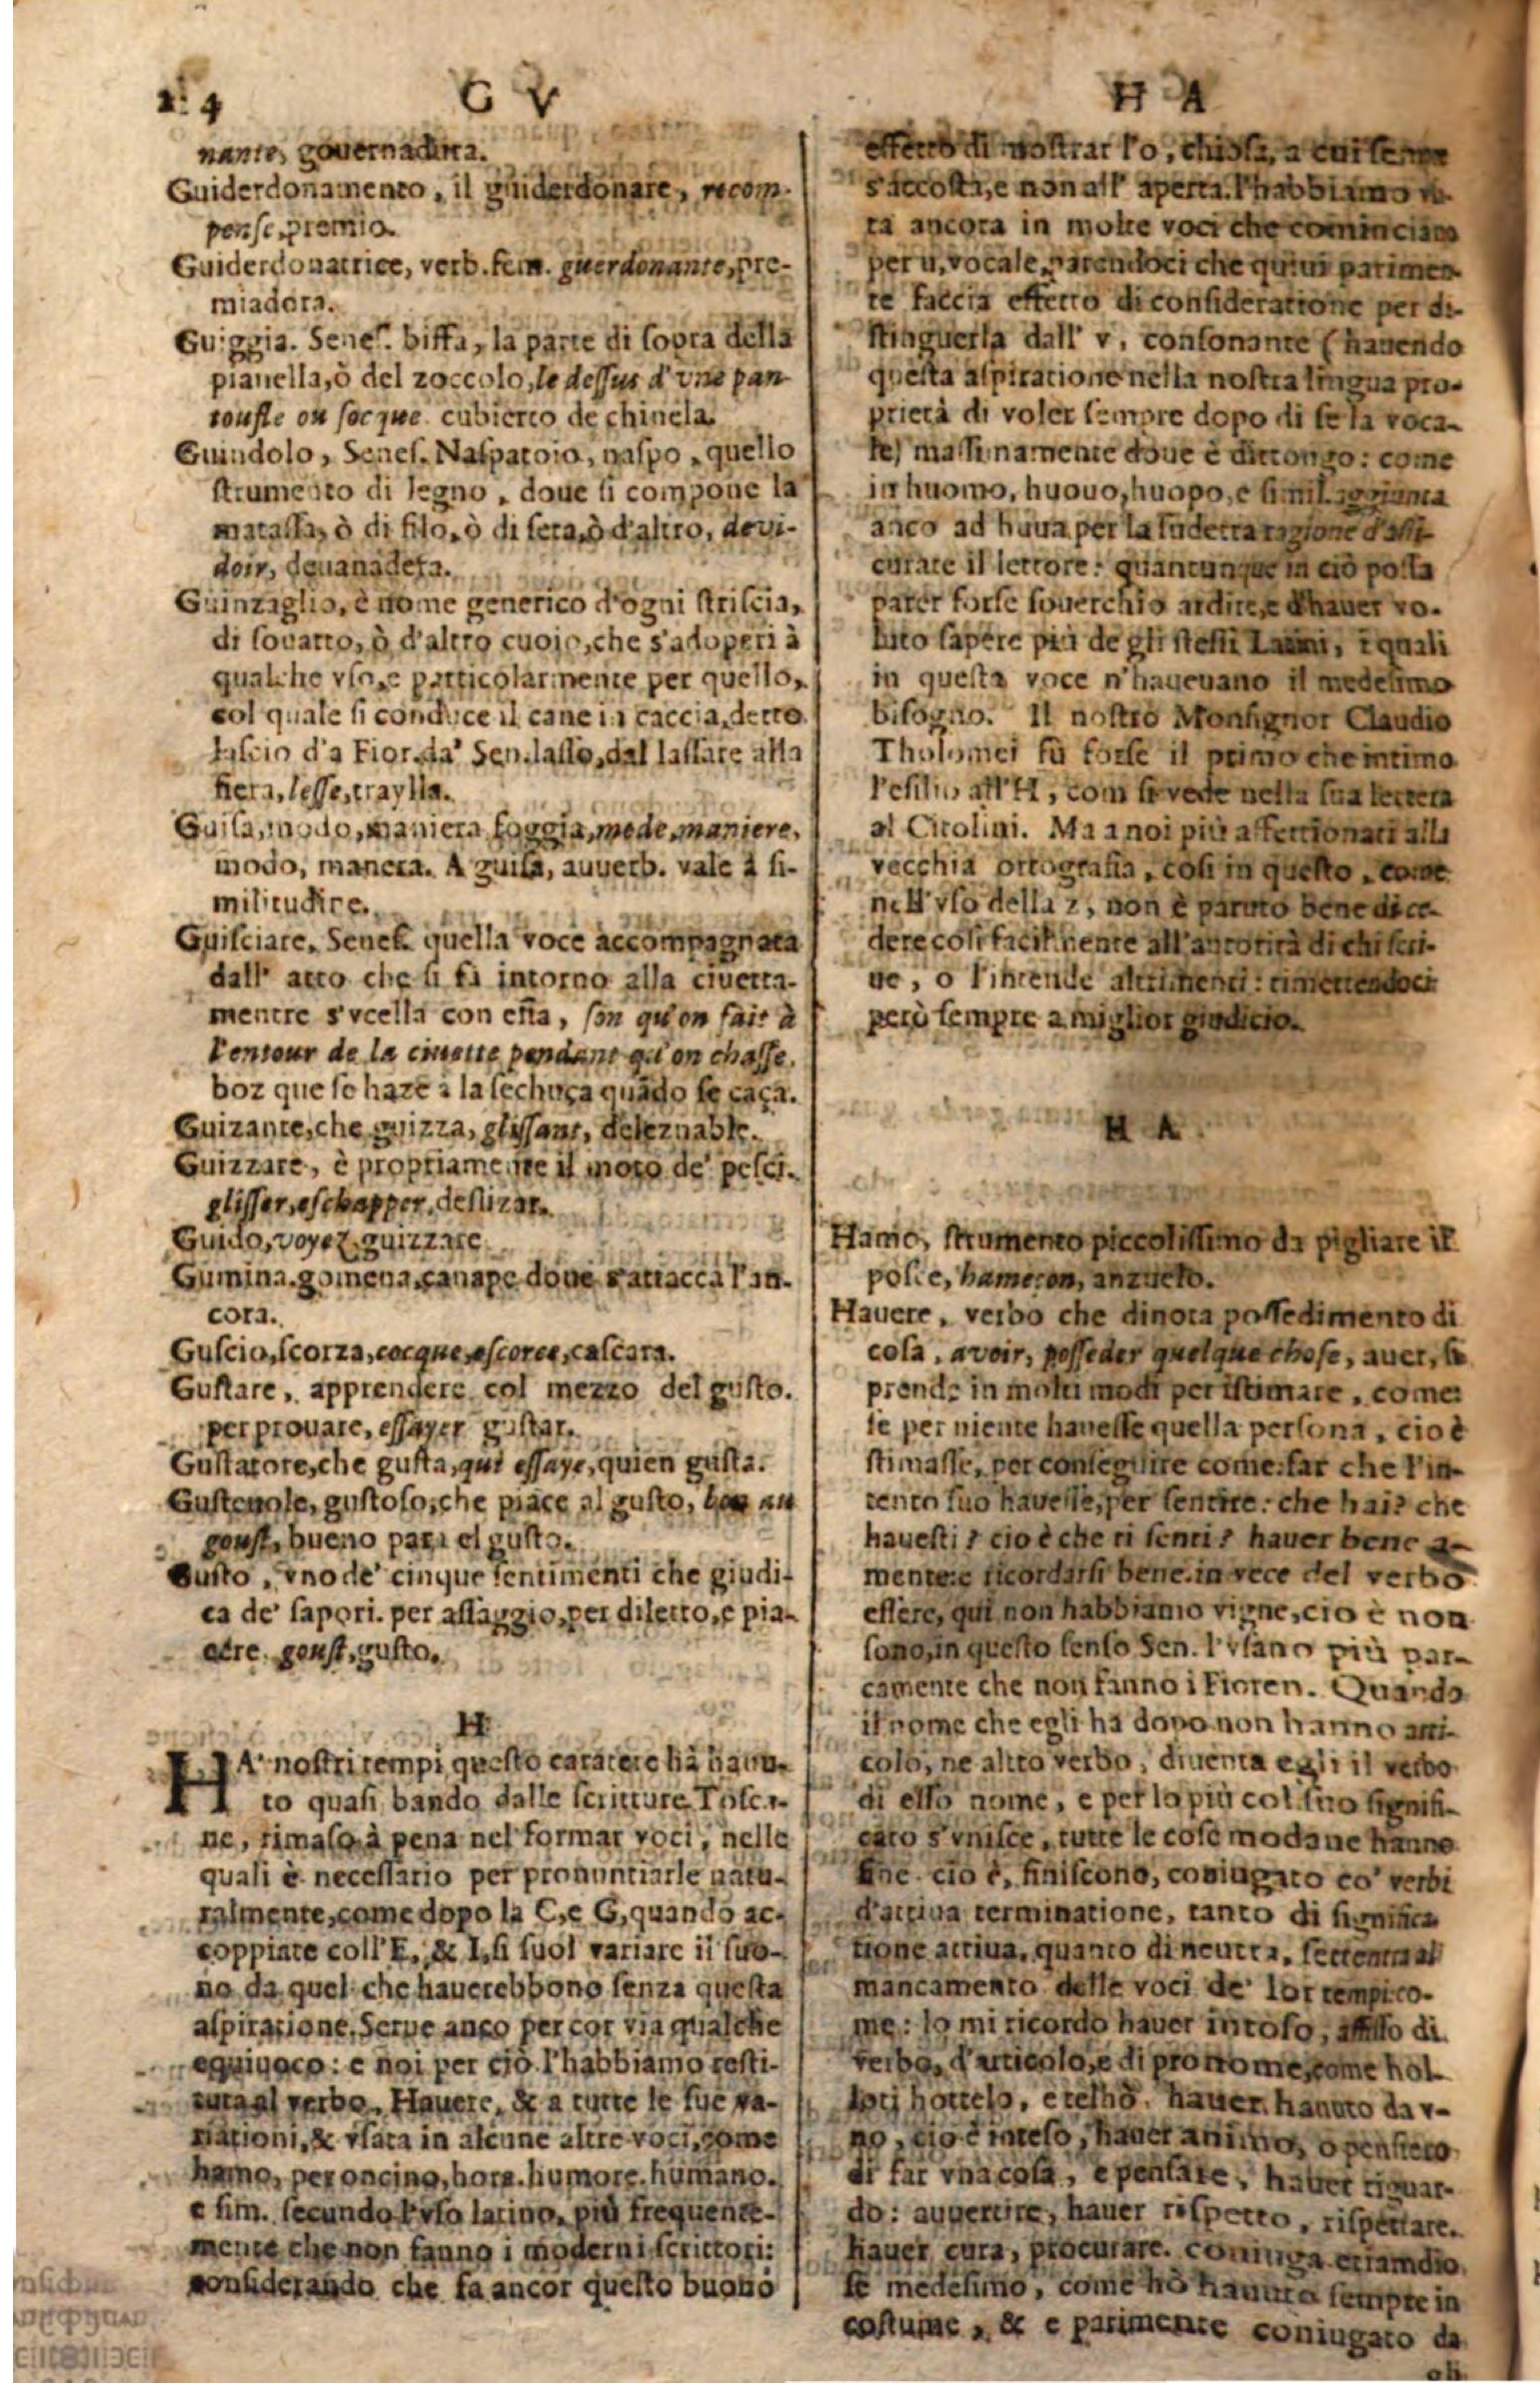 G V
nante, gouernadora.
Guiderdonamento, il guiderdonare, recom-
pense, premio.
Guiderdonatrice, verb. fem. guerdonante, pre-
miadora.
Guiggia. Senes. biffa, la parte di sopra della
pianella, ò del zoccolo, le dessus d'vne pan-
toufle ou socque. cubierto de chinela.
Guindolo, Senes. Naspatoio, naspo, quello
strumento di legno, doue si compone la
matassa, ò di filo, ò di seta, ò d'altro, devi-
doir, deuanadera.
Guinzaglio, è nome generico d'ogni striscia,
di souatto, ò d'altro cuoio, che s'adoperi à
qualche vso, e particolarmente per quello,
col quale si conduce il cane in caccia, detto
lascio d'a Fior. da' Sen. lasso, dal lassare alla
fiera, lesse, traylla.
Guisa, modo, maniera foggia, mode, maniere,
modo, manera. A guisa, auuerb. vale à si-
militudine.
Guisciare, Senes. quella voce accompagnata
dall' atto che si fà intorno alla ciuetta-
mentre s'vcella con essa, son qu'on fait à
l'entour de la ciuette pendant qu'on chasse.
boz que se haze a la lechuça quãdo se caça.
Guizante, che guizza, glissant, deleznable.
Guizzare, è propriamente il moto de' pesci.
glisser, eschapper, deslizar.
Guido, voyez, guizzare
Gumina. gomena, canape doue s'attacca l'an-
cora.
Guscio, scorza, cocque, escorce, cascara.
Gustare, apprendere col mezzo del gusto.
per prouare, essayer gustar.
Gustatore, che gusta, qui essaye, quien gusta.
Gusteuole, gustoso, che piace al gusto, bon au
goust, bueno para el gusto.
Gusto, vno de' cinque sentimenti che giudi-
ca de' sapori. per assaggio, per diletto, e pia-
cere. goust, gusto.
H
HA' nostri tempi questo caratere hà hauu-
to quasi bando dalle scritture Tosca-
ne, rimaso à pena nel formar voci, nelle
quali è necessario per pronuntiarle natu-
ralmente, come dopo la C, e G, quando ac-
coppiate coll'E, & I, si suol variare il suo-
no da quel che hauerebbono senza questa
aspiratione. Serue anco per cor via qualche
equiuoco: e noi per ciò l'habbiamo resti-
tuta al verbo, Hauere, & a tutte le sue va-
riationi, & vsata in alcune altre voci, come
hamo, per oncino, hora. humore. humano.
e sim. secundo l'vso latino, più frequente-
mente che non fanno i moderni scrittori:
considerando che fa ancor questo buono
H A
effetto di mostrar l'o, chiosa, a cui sempre
s'accosta, e non all' aperta. l'habbiamo
ta ancora in molte voci che cominciano
per u, vocale, parendoci che quiui parimen-
te faccia effetto di consideratione per di-
stinguerla dall' v, consonante (hauendo
questa aspiratione nella nostra lingua pro-
prietà di voler sempre dopo di se la voca-
le) massimamente doue è dittongo: come
in huomo, huouo, huopo, e simil. aggiunta
anco ad huua per la sudetta ragione d'assi-
curare il lettore: quantunque in ciò possa
parer forse souerchio ardire, e d'hauer vo-
luto sapere più de gli stessi Latini, i quali
in questa voce n'haueuano il medesimo
bisogno. Il nostro Monsignor Claudio
Tholomei fù forse il primo che intimo
l'esilio all'H, com si vede nella sua lettera
al Citolini. Ma a noi più affettionati alla
vecchia ortografia, così in questo, come
nell'vso della z, non è paruto bene di ce-
dere così facilmente all'autorità di chi scri-
ue, o l'intende altrimenti: rimettendoci
però sempre a miglior giudicio.
H A
Hamo, strumento piccolissimo da pigliare il
pesce, hameçon, anzuelo.
Hauere, verbo che dinota possedimento di
cosa, avoir, posseder quelque chose, auer, si
prende in molti modi per istimare, come:
se per niente hauesse quella persona, cio è
stimasse, per conseguire come: far che l'in-
tento suo hauesse, per sentire: che hai? che
hauesti? cio è che ti senti? hauer bene a-
mente: e ricordarsi bene. in vece del verbo
essere, qui non habbiamo vigne, cio è non
sono, in questo senso Sen. l'vsano più par-
camente che non fanno i Fioren. Quando
il nome che egli ha dopo non hanno arti-
colo, ne altro verbo, diuenta egli il verbo
di esso nome, e per lo più col suo signifi-
cato s'vnisce, tutte le cose modane hanno
fine cio è, finiscono, coniugato co' verbi
d'attiua terminatione, tanto di significa
tione attiua, quanto di neutra, sottentra al
mancamento delle voci de' lor tempi co-
me: Io mi ricordo hauer intoso, affisso di
verbo, d'articolo, e di pronome, come hol-
loti hottelo, e telhò. hauer hauuto da v-
no, cio è inteso, hauer animo, o pensiero
di far vna cosa, e pensare, hauer riguar-
do: auuertire, hauer rispetto, rispettare.
hauer cura, procurare. coniuga etiamdio
se medesimo, come hò hauuto sempre in
costume, & e parimente coniugato da